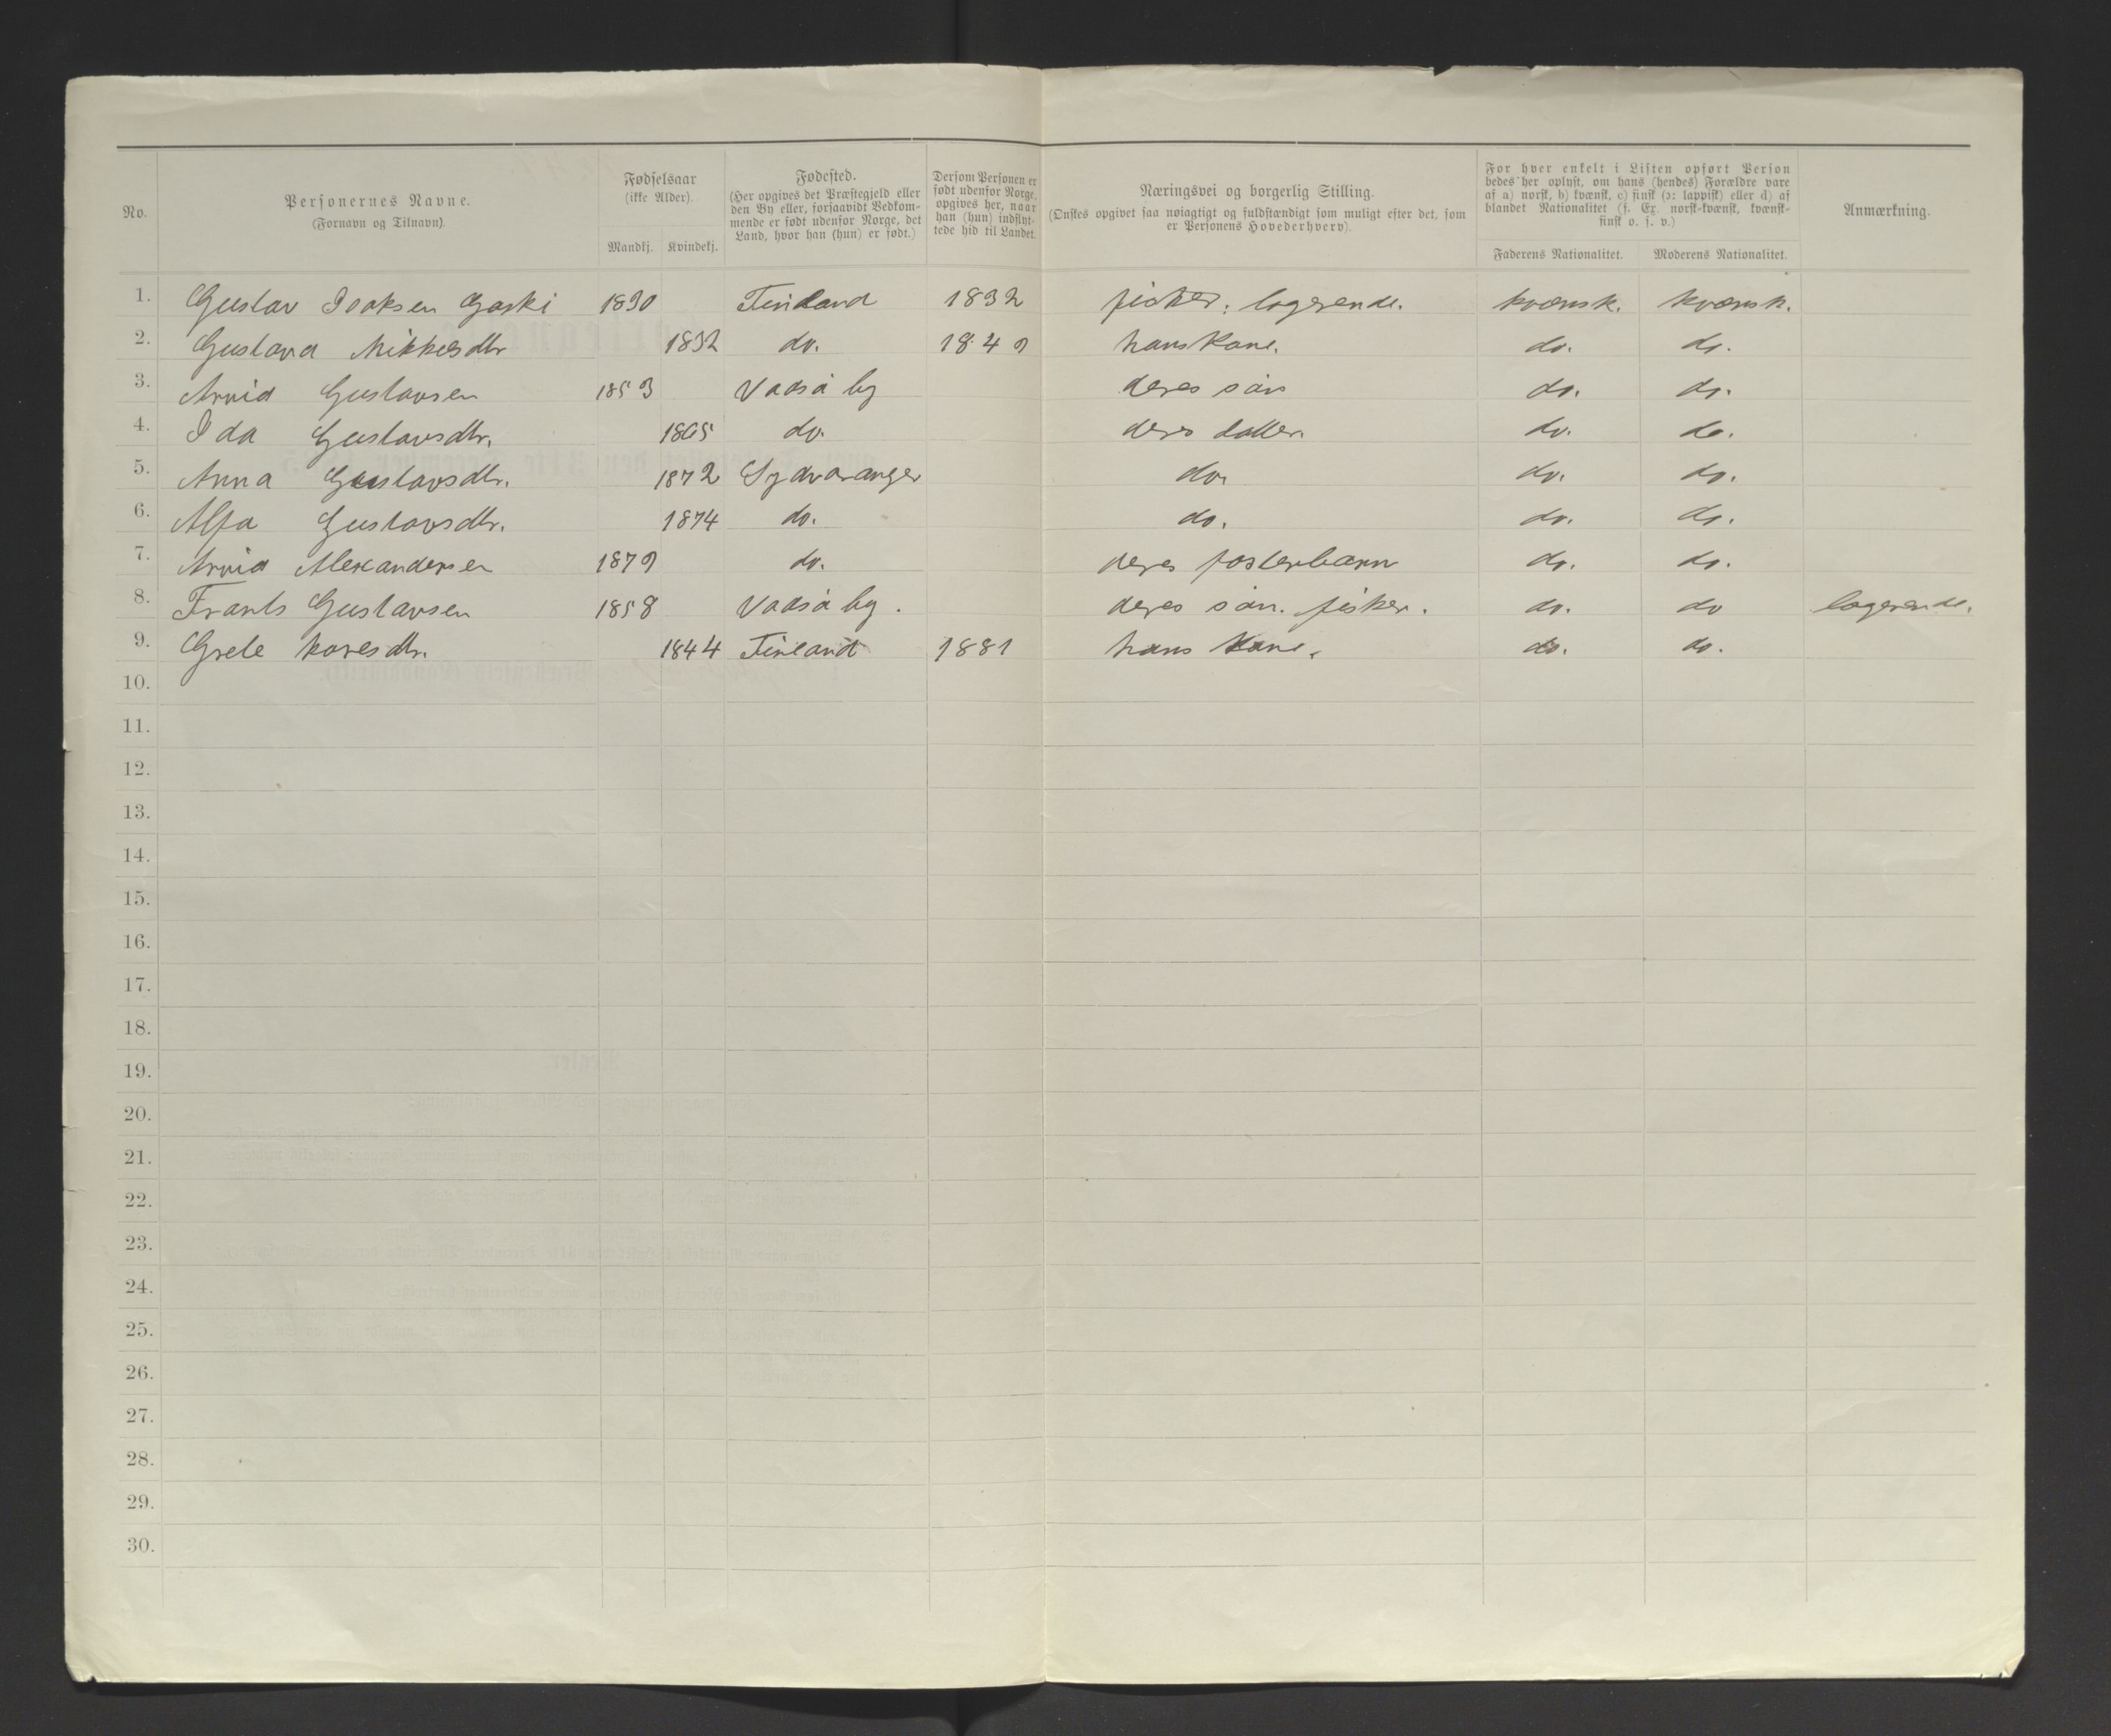 No.
Personernes Navne.
(Fornavn og Tilnavn).
Fødselsaar
(ikke Alder).
Mandkj. Kvindekj.
Fødested.
(Her opgives det Præstegjeld eller
den By eller, forsaavidt Vedkom-
mende er født udenfor Norge, det
Land, hvor han (hun) er født.)
Dersom Personen er
født udenfor Norge,
opgives her, naar
han (hun) indflyt-
tede hid til Landet.
Næringsvei og borgerlig Stilling.
(Ønskes opgivet saa nøiagtigt og fuldstændigt som muligt efter det, som
er Personens Hovederhverv).
For hver enkelt i Listen opført Person
bedes her oplyst, om hans (hendes) Forældre vare
af a) norsk, b) kvænsk, c) finsk (ɔ: lappisk) eller d) af
blandet Nationalitet (f. Ex. norsk-kvænsk, kvænsk-
finsk o. s. v.)
Faderens Nationalitet. Moderens Nationalitet.
Anmærkning.
1. Gustav Isaksen Gaski 1830 Finland 1832 fisker; logerende. kvænsk. kvænsk.
2. Gustava Mikkelsdtr 1832 do. 1849 hans Kone. do. do.
3. Arvid Gustavsen 1853 Vadsø by deres søn do. do.
4. Ida Gustavsdtr. 1865 do. deres datter. do. do.
5. Anna Gustavsdtr. 1872 Sydvaranger do. do. do.
6. Alfa Gustavsdtr. 1874 do. do. do. do.
7. Arvid Alexandersen 1879 do. deres fosterbarn do. do.
8. Frants Gustavsen 1858 Vadsø by. deres søn. fisker. do. do logerende.
9. Grete 1844 Finland 1881 hans Kone. do. do.
10.
11.
12.
13.
14.
15.
16.
17.
18.
19.
20.
21.
22.
23.
24.
25.
26.
27.
28.
29.
30.